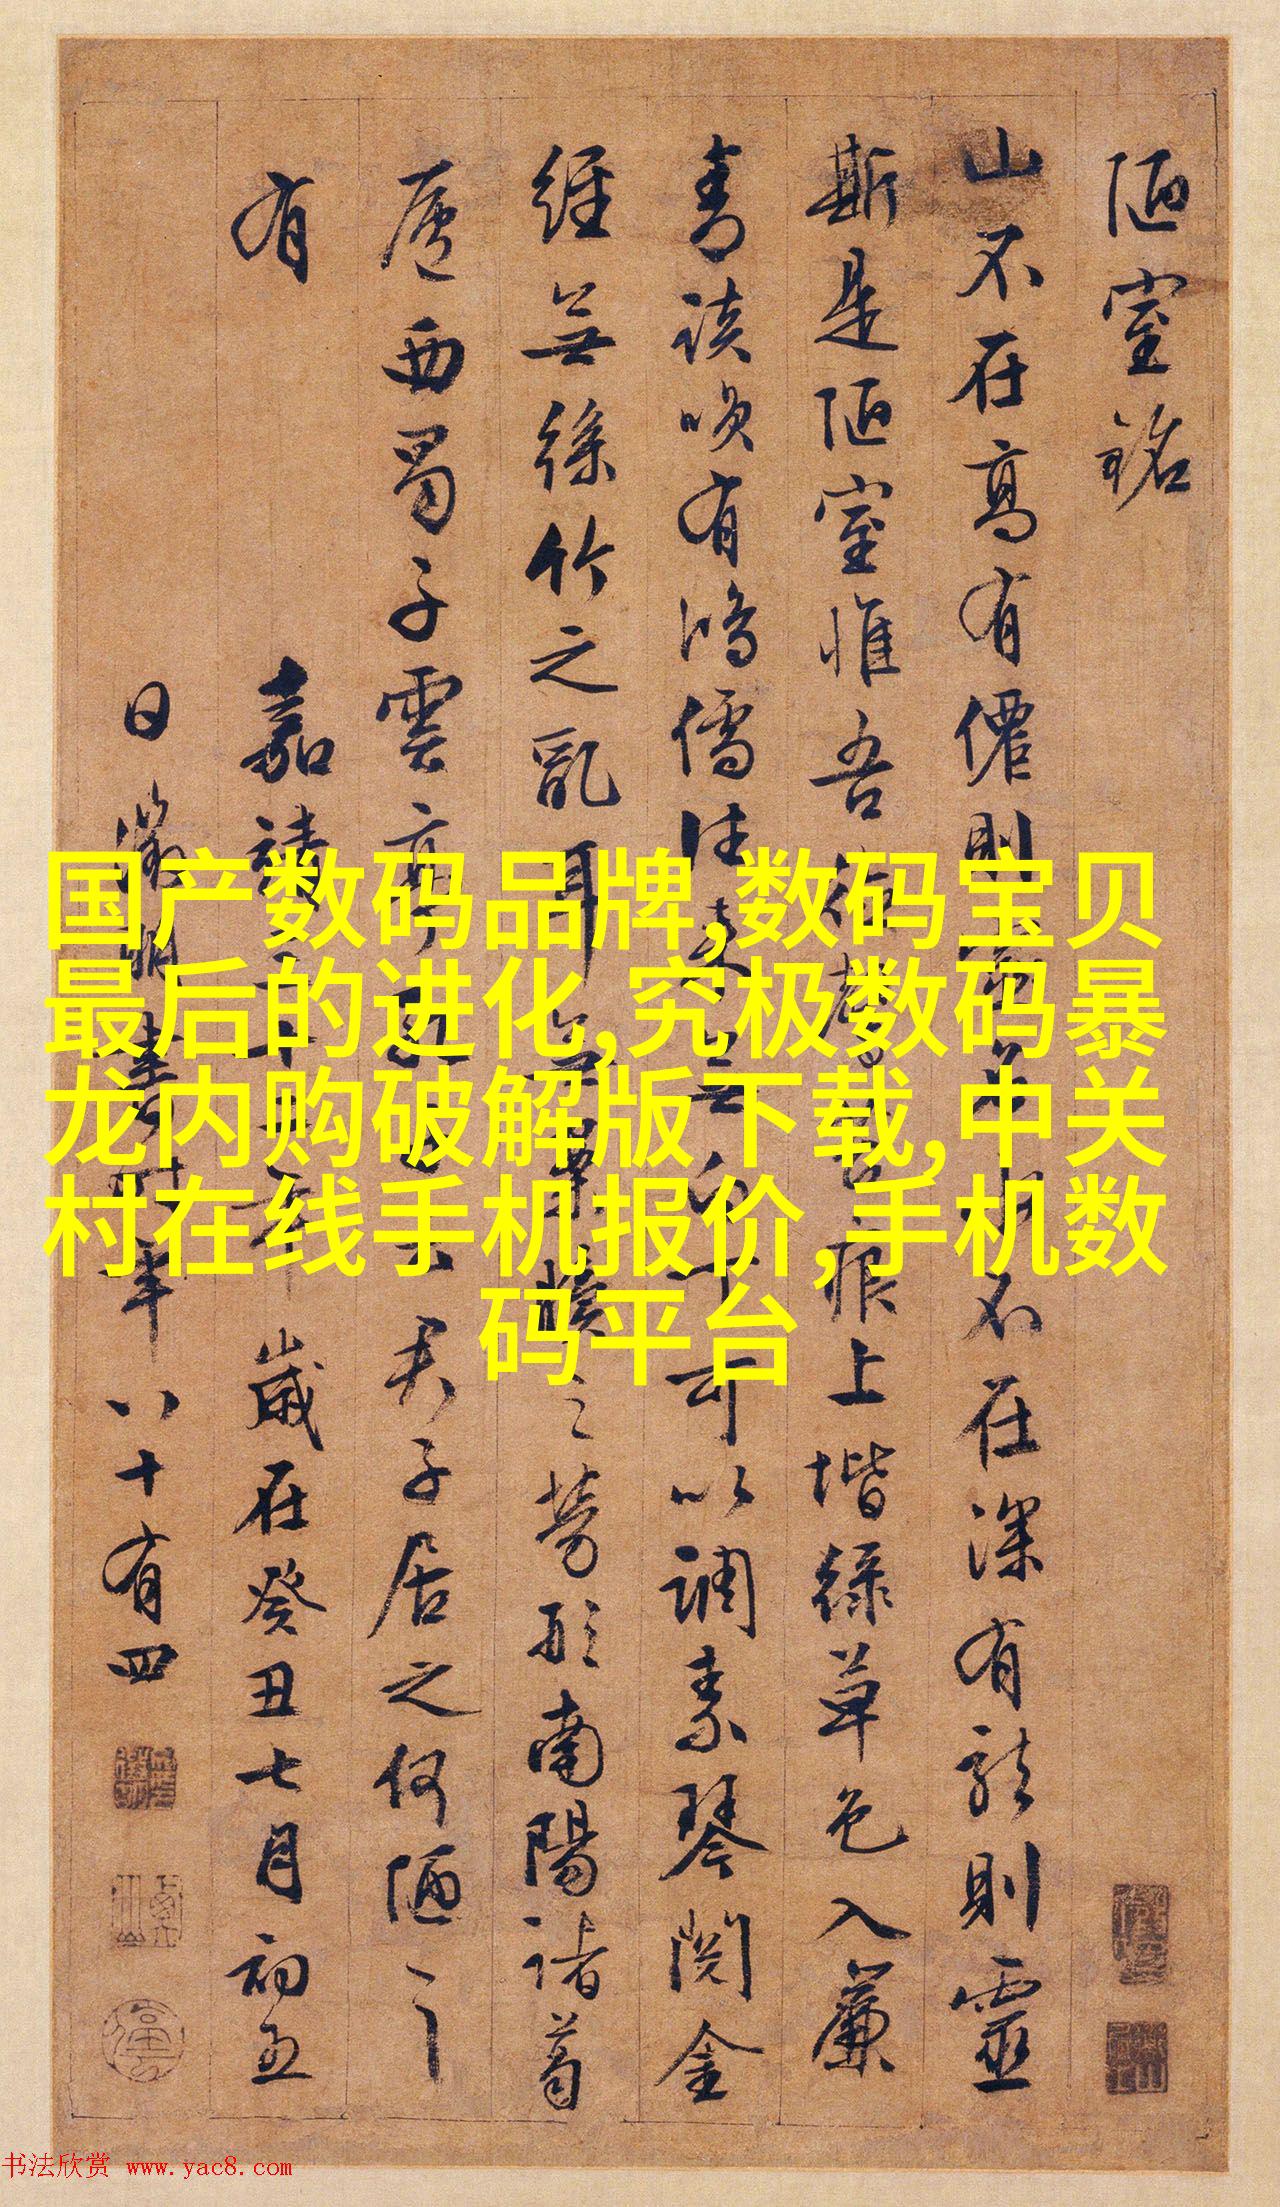 陋室銘
山不在高有僊則不在深有龍則靈
斯是陋室惟吾痕上堦綠草色入簾
青談咲有鴻儒往来無可以調素琴閱金
經無絲竹之亂耳無案牘之勞形南陽諸葛
廬西蜀子雲亭君子居之何陋之
有
嘉靖三十二年歲在癸丑七月初五
日徵明書時年八十有四
国产数码品牌,数码宝贝
最后的进化,究极数码暴
龙内购破解版下载,中关
村在线手机报价,手机数
码平台
书法欣赏 www.yac8.com